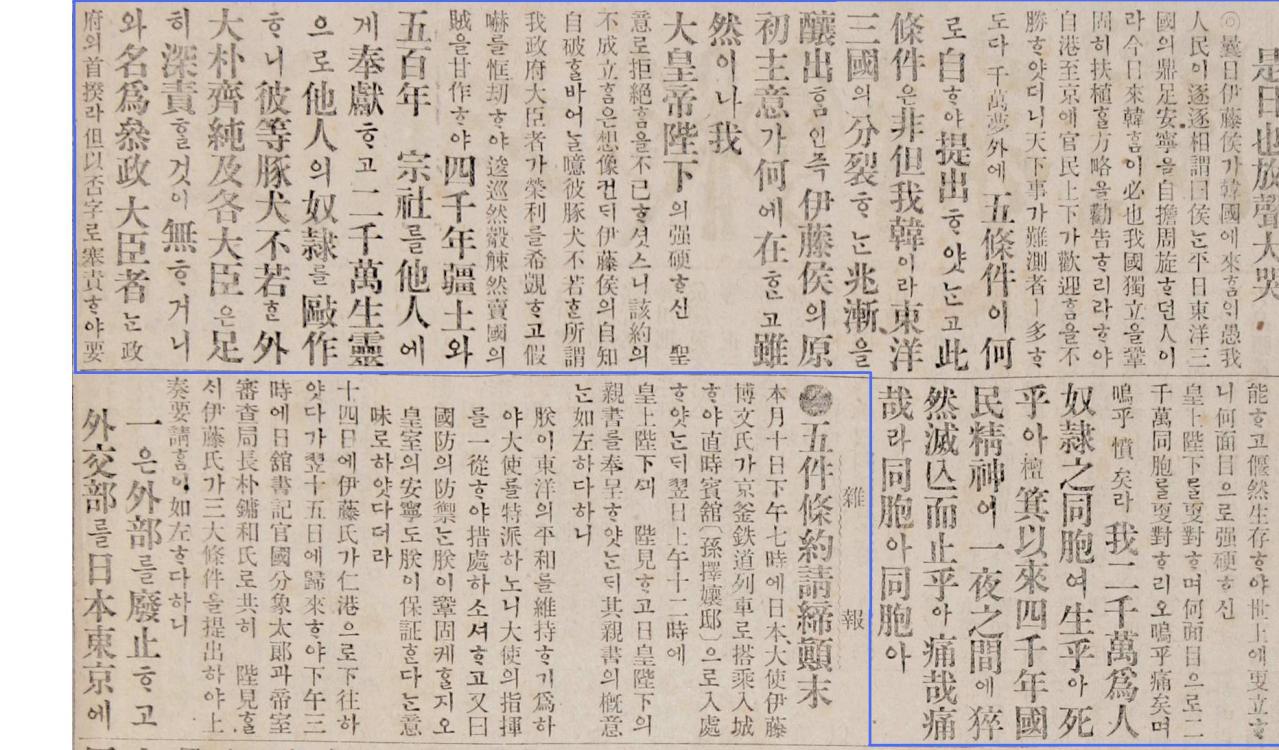 是日也放聲大哭
◎曩日伊藤侯가韓國에來ᄒᆞᆷᄋᆡ愚我
人民이逐逐相謂曰侯ᄂᆞᆫ平日東洋三
國의鼎足安寧을自擔周旋ᄒᆞ던人이
라今日來韓ᄒᆞᆷ이必也我國獨立을鞏
固히扶植ᄒᆞᆯ方略을勸告ᄒᆞ리라ᄒᆞ야
自港至京에官民上下가歡迎ᄒᆞᆷ을不
勝ᄒᆞ얏더니天下事가難測者ㅣ多ᄒᆞ
도다千萬夢外에五條件이何
로自ᄒᆞ야提出ᄒᆞ얏ᄂᆞᆫ고此
條件은非但我韓이라東洋
三國의分裂ᄒᆞᄂᆞᆫ兆漸을
釀出ᄒᆞᆷ인즉伊藤侯의原
初主意가何에在ᄒᆞᆫ고雖
然이나我
大皇帝陛下의强硬ᄒᆞ신 聖
意로拒絶ᄒᆞᆷ을不已ᄒᆞ셧스니該約의
不成立ᄒᆞᆷ은想像컨ᄃᆡ伊藤侯의自知
自破ᄒᆞᆯ바어ᄂᆞᆯ噫彼豚犬不若ᄒᆞᆫ所謂
我政府大臣者가榮利를希覬ᄒᆞ고假
嚇를恇劫ᄒᆞ야逡巡然觳觫然賣國의
賊을甘作ᄒᆞ야四千年疆土와
五百年 宗社를他人에
게奉獻ᄒᆞ고二千萬生靈
으로他人의奴隷를敺作
ᄒᆞ니彼等豚犬不若ᄒᆞᆫ外
大朴齊純及各大臣은足
히深責ᄒᆞᆯ것이無ᄒᆞ거니
와名爲叅政大臣者ᄂᆞᆫ政
府의首揆라但以否字로塞責ᄒᆞ야要
能ᄒᆞ고偃然生存ᄒᆞ야世上에更立ᄒᆞ
니何面目으로强硬ᄒᆞ신
皇上陛下를更對ᄒᆞ며何面目으로二
千萬同胞를更對ᄒᆞ리오嗚乎痛矣며
嗚乎憤矣라我二千萬爲人
奴隷之同胞여生乎아死
乎아檀箕以來四千年國
民精神이一夜之間에猝
然滅亡而止乎아痛哉痛
哉라同胞아同胞아
雜報
●五件條約請締顚末
本月十日下午七時에日本大使伊藤
博文氏가京釜鉄道列車로搭乘入城
ᄒᆞ야直時賓館(孫擇孃邸)으로入處
ᄒᆞ얏ᄂᆞᆫᄃᆡ翌日上午十二時에
皇上陛下ᄭᅴ 陛見ᄒᆞ고日皇陛下의
親書를奉呈ᄒᆞ얏ᄂᆞᆫᄃᆡ其親書의槪意
ᄂᆞᆫ如左하다하니
朕이東洋의平和를維持ᄒᆞ기爲하
야大使를特派하노니大使의指揮
를一從ᄒᆞ야措處하소셔ᄒᆞ고又曰
國防의防禦ᄂᆞᆫ朕이鞏固케ᄒᆞᆯ지오
皇室의安寧도朕이保証ᄒᆞᆫ다ᄂᆞᆫ意
味로하얏다더라
十四日에伊藤氏가仁港으로下往하
얏다가翌十五日에歸來ᄒᆞ야下午三
時에日舘書記官國分象太郞과帝室
審査局長朴鏞和氏로共히 陛見ᄒᆞᆯ
ᄉᆡ伊藤氏가三大條件을提出하야上
奏要請ᄒᆞᆷ이如左ᄒᆞ다하니
一은外部를廢止ᄒᆞ고
外交部를日本東京에